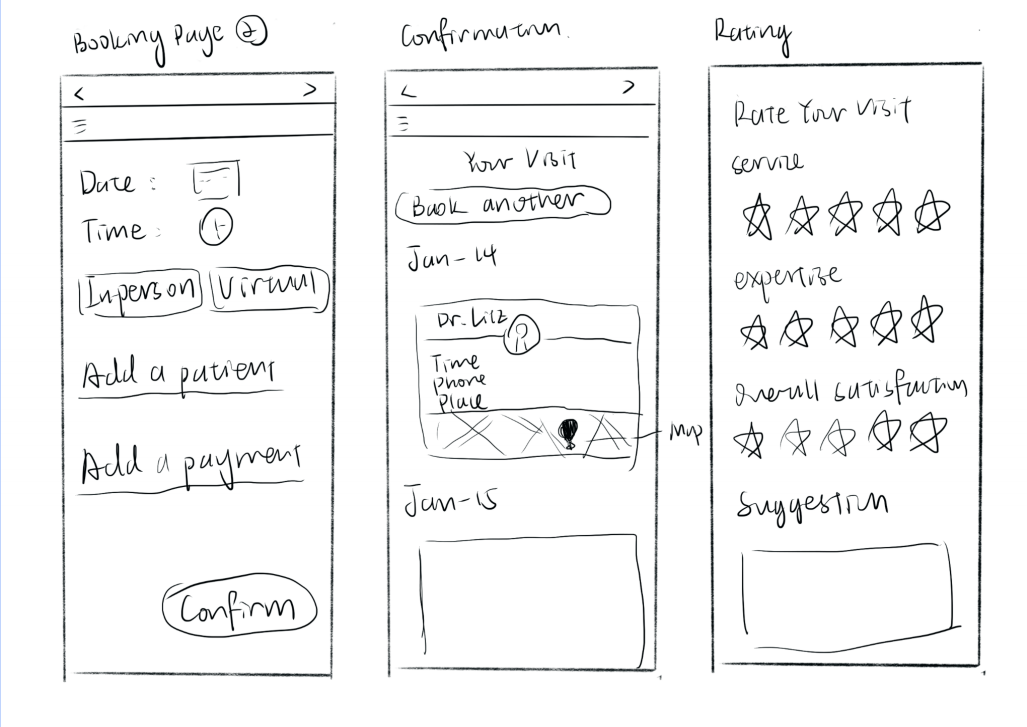 Booking Page ②
<
>
Date :
Time :
Inperson
Virtual
Add a patient
Add a payment
Confirm
Confirmation
<
>
Your Visit
Book another
Jan-14
Dr. Liiz
Time
Phone
Place
Map
Jan-15
Rating
Rate Your Visit
service
expertise
Overall satisfaction
Suggestion